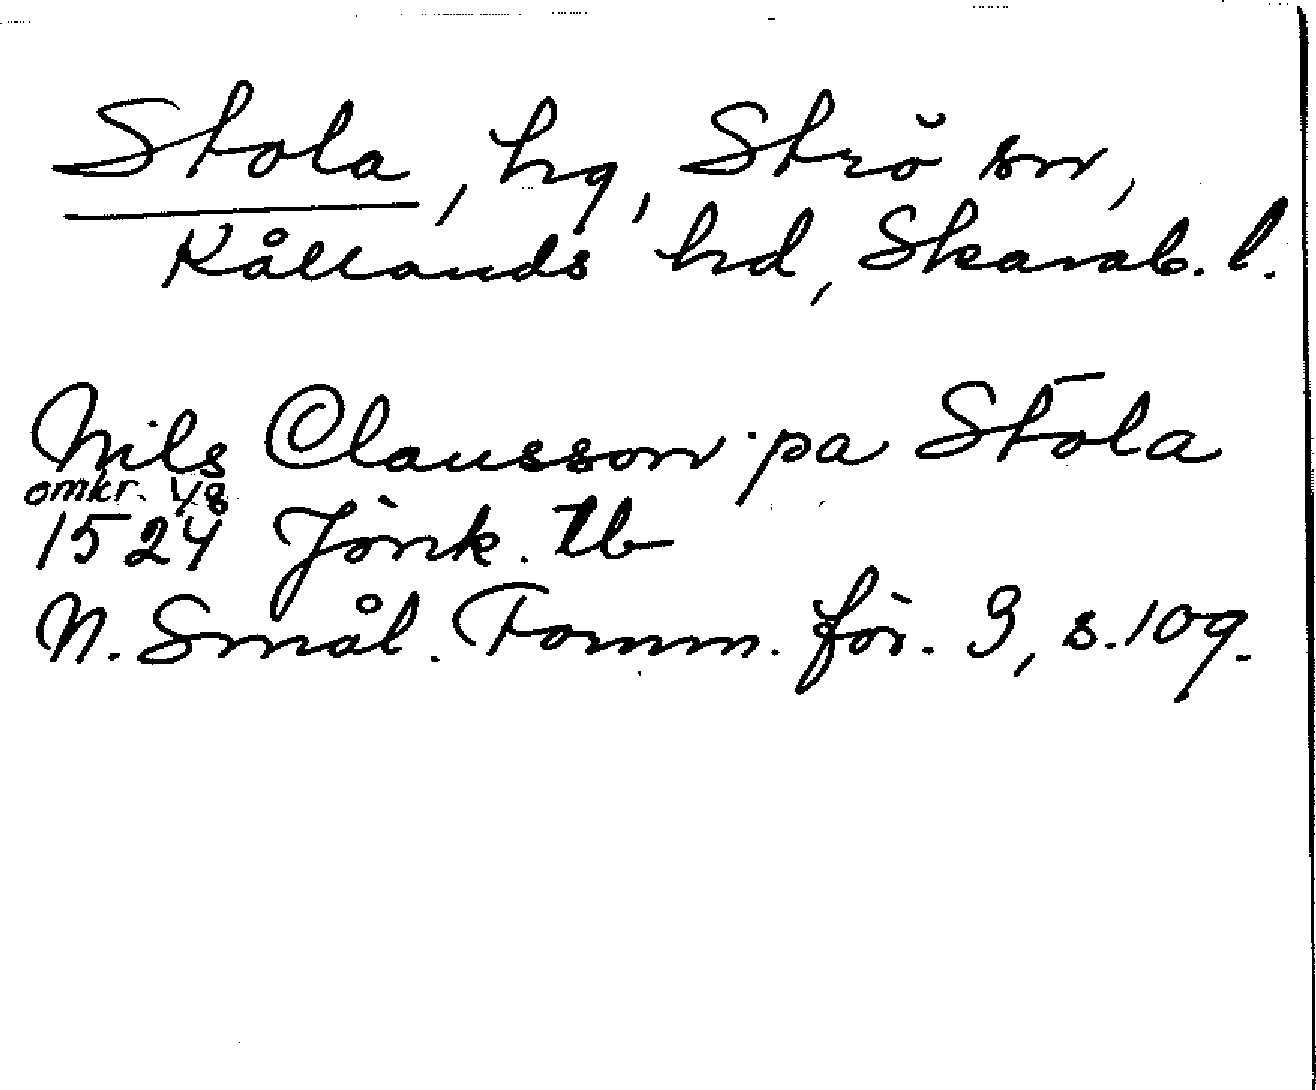 Stola, hg, Strö sn,
Kållands hd, Skarab. l.
Nils Clausson pa Stola
omkr. 1/8
1524 Jönk. tb
N. Smål. Fornm. för. 3, s. 109.